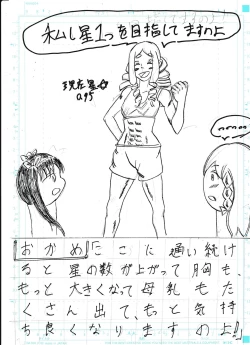 私し星1つを目指してますのよ
現在星☆
0.95
おかめたこに通い続け
ると星の数が上がって胸も、
もっと大きくなって母乳もた
くさん出て、もっと気持
ち良くなりますのよ!!